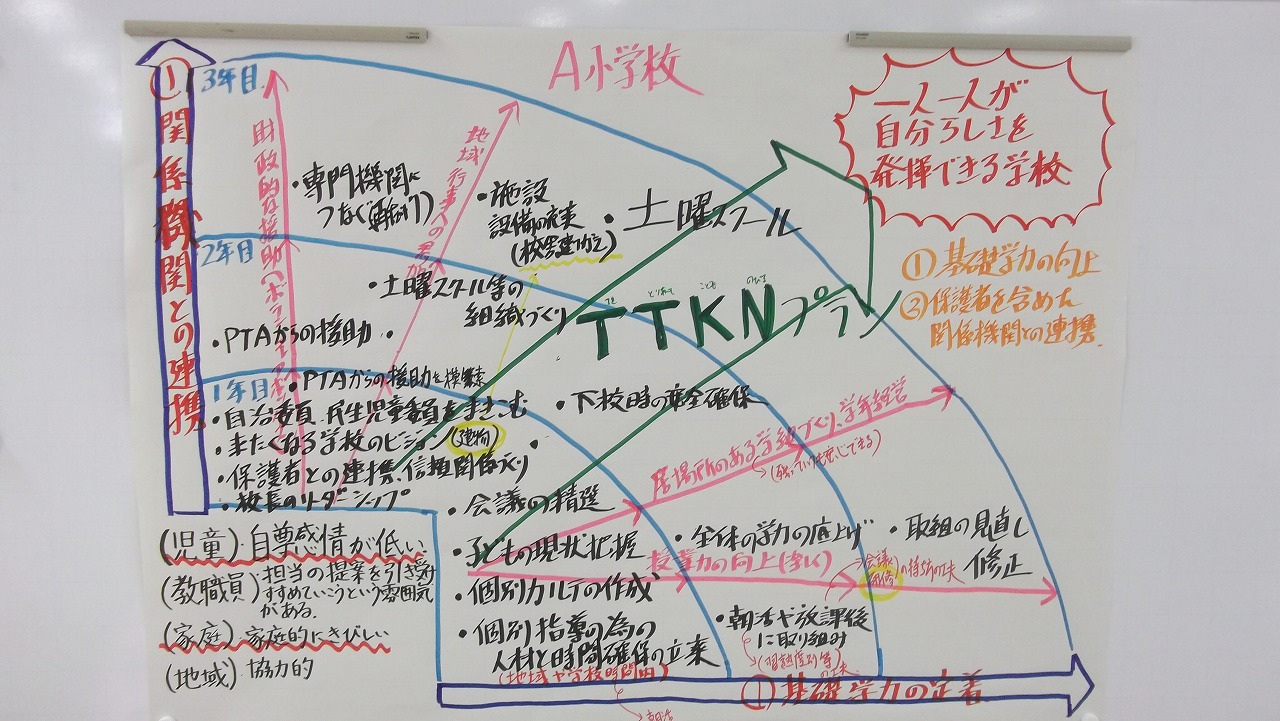 A小学校
一人一人が
自分らしさを
発揮できる学校
① 基礎学力の向上
③ 保護者を含めた
関係機関との連携
① 関係機関との連携
3年目
2年目
1年目
財政的な援助
地域行事への参加
・専門機関に
つなぐ
・施設
設備の充実
(校舎建てかえ)
・土曜スクール
・土曜スクール等の
組織づくり
TTKNプラン
・PTAからの援助
・PTAからの援助を模索
・自治委員、民生児童委員をまきこむ
・来たくなる学校のビジョン(建物)
・保護者との連携、信頼関係づくり
・校長のリーダーシップ
・下校時の安全確保
居場所のある学級づくり、学年経営
・会議の精選
・子どもの現状把握
・個別カルテの作成
・個別指導の為の
人材と時間確保の立案
(地域や学校時間内)
朝活
・全体の学力の底上げ
授業力の向上
・取組の見直し
修正
・朝活や放課後
に取り組み
(習熟度別等
の工夫
① 基礎学力の定着
(児童)・自尊感情が低い
(教職員)・担当の提案を引き受け
すすめていこうという雰囲気
がある。
(家庭)・家庭的にきびしい
(地域)・協力的